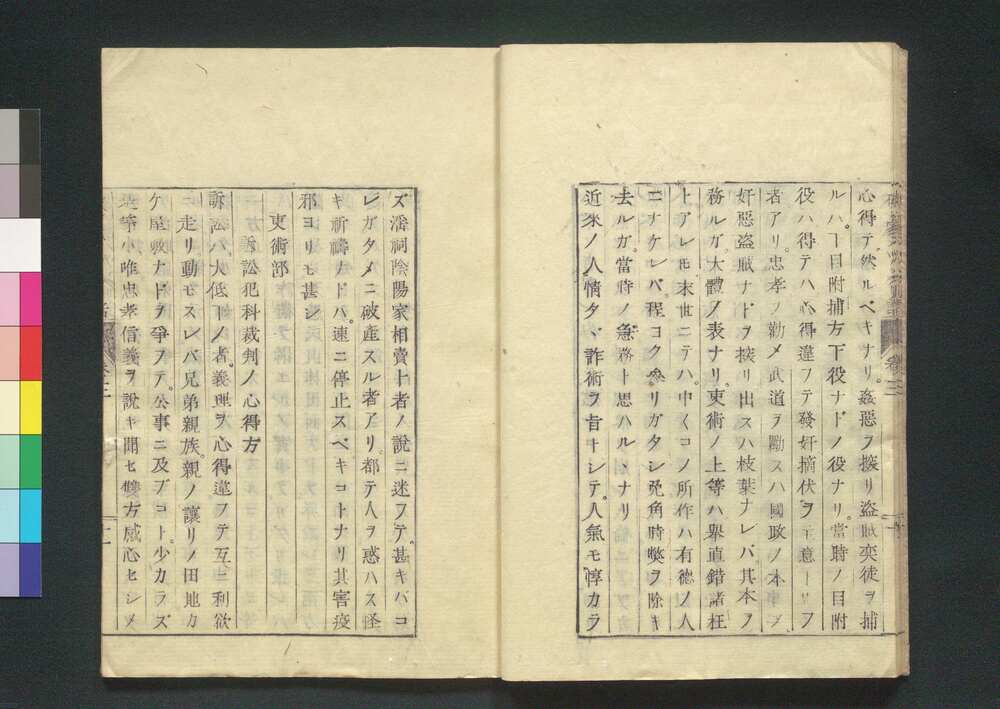 心得テ然ルベキナリ姦惡ヲ搜リ盜賊奕徒ヲ捕
ルハ下目附捕方下役ナドノ役ナリ當時ノ目附
役ハ得テハ心得違フテ發奸摘伏ヲ主意トリヲ
者アリ忠孝ノ勸メ武道ヲ勵スハ國政ノ本事ヲ
奸惡盜賊ナドヲ搜リ出スハ枝葉ナレバ其本ヲ
務ルガ大體ノ表ナリ吏術ノ上等ハ擧直錯諸枉
上アレ𪜈末世ニテハ中〱コノ所作ハ有德ノ人
ニナケレバ程コク參リガタシ兎角時弊ヲ除キ
去ルガ當時ノ急務ト思ハルヽナリ
近來ノ人情タヾ詐術ヲ旨キシテ人氣モ惇カラ
ズ潘祠陰陽家相賣卜者ノ說ニ迷フテ甚キバコ
レガタメニ破産スル者アリ都テ人ヲ惑ハス怪
キ祈禱ナドハ速ニ停止スベキコトナリ其害疫
邪ヨリモ甚シ
吏術部
訴訟犯科裁判ノ心得方
訴訟ハ大低下ノ者義理ヲ心得違フテ互ニ利欲
ニ走リ動モスレバ兄弟親族親ノ讓リノ田地カ
ケ屋敷ナドヲ爭フテ公事ニ及ブコト少カラズ
是等小唯忠孝信義ヲ說キ聞セ雙方感心ヒシメ
卷三